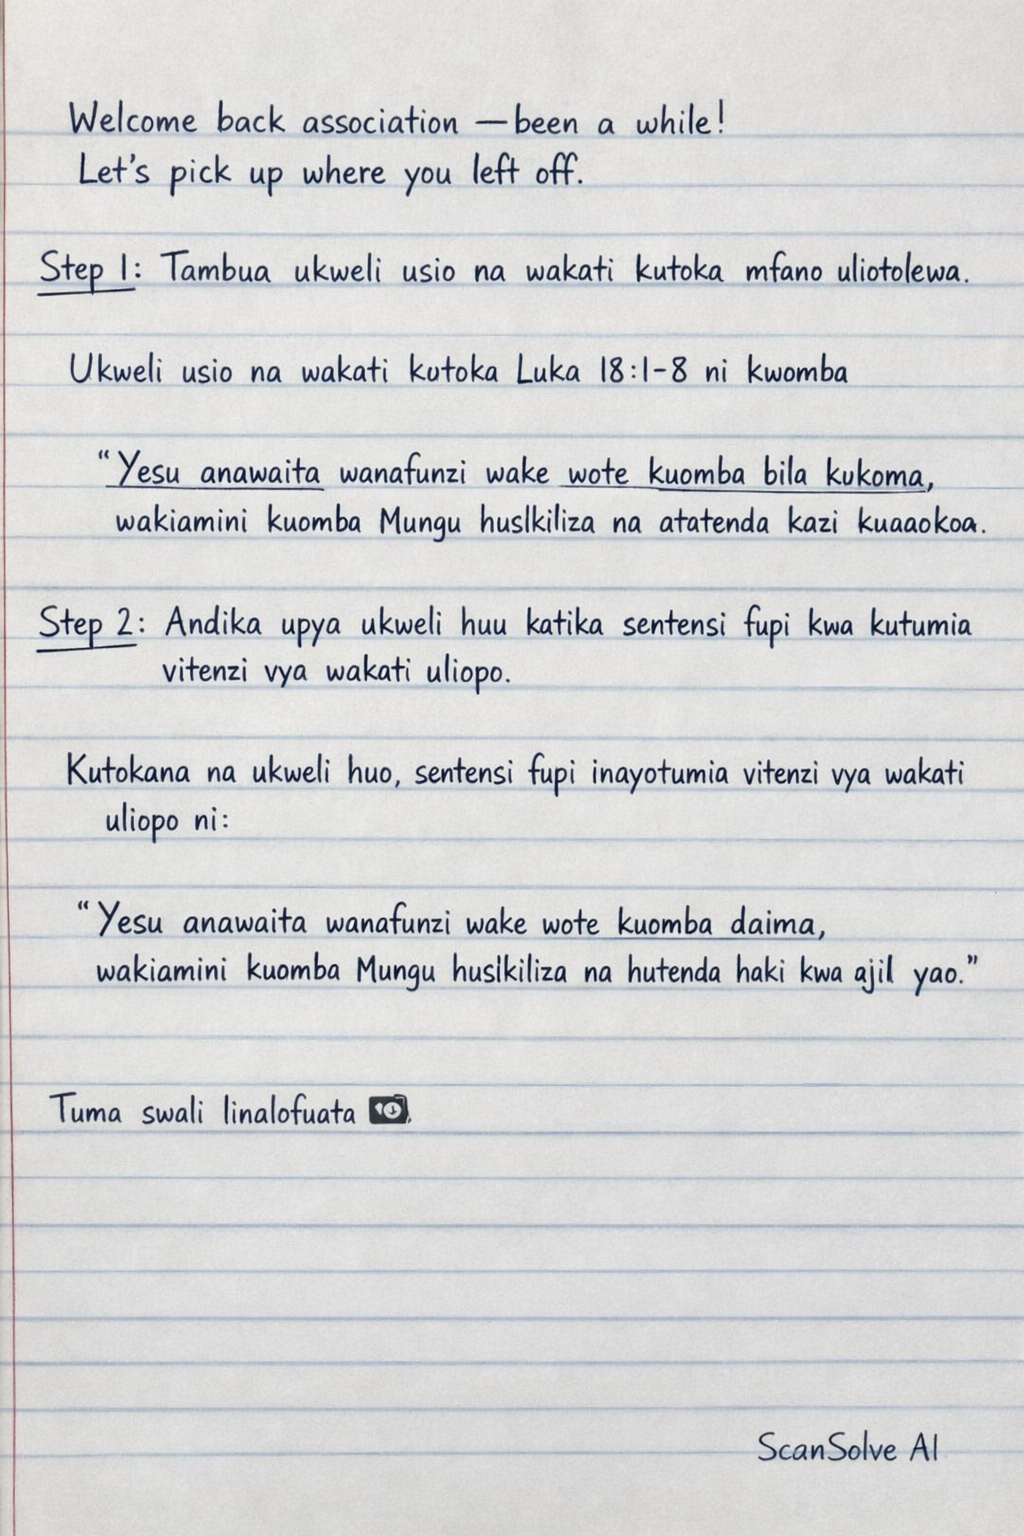 Welcome back association — been a while!
Let's pick up where you left off.
Step 1: Tambua ukweli usio na wakati kutoka mfano uliotolewa.
Ukweli usio na wakati kutoka Luka 18:1-8 ni kwomba
"Yesu anawaita wanafunzi wake wote kuomba bila kukoma,
wakiamini kuomba Mungu huslkiliza na atatenda kazi kuaaokoa.
Step 2: Andika upya ukweli huu katika sentensi fupi kwa kutumia
vitenzi vya wakati uliopo.
Kutokana na ukweli huo, sentensi fupi inayotumia vitenzi vya wakati
uliopo ni:
"Yesu anawaita wanafunzi wake wote kuomba daima,
wakiamini kuomba Mungu huslkiliza na hutenda haki kwa ajil yao."
Tuma swali linalofuata
ScanSolve AI